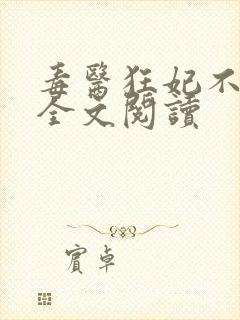 毒醫狂妃不
全文閱讀
賓卓